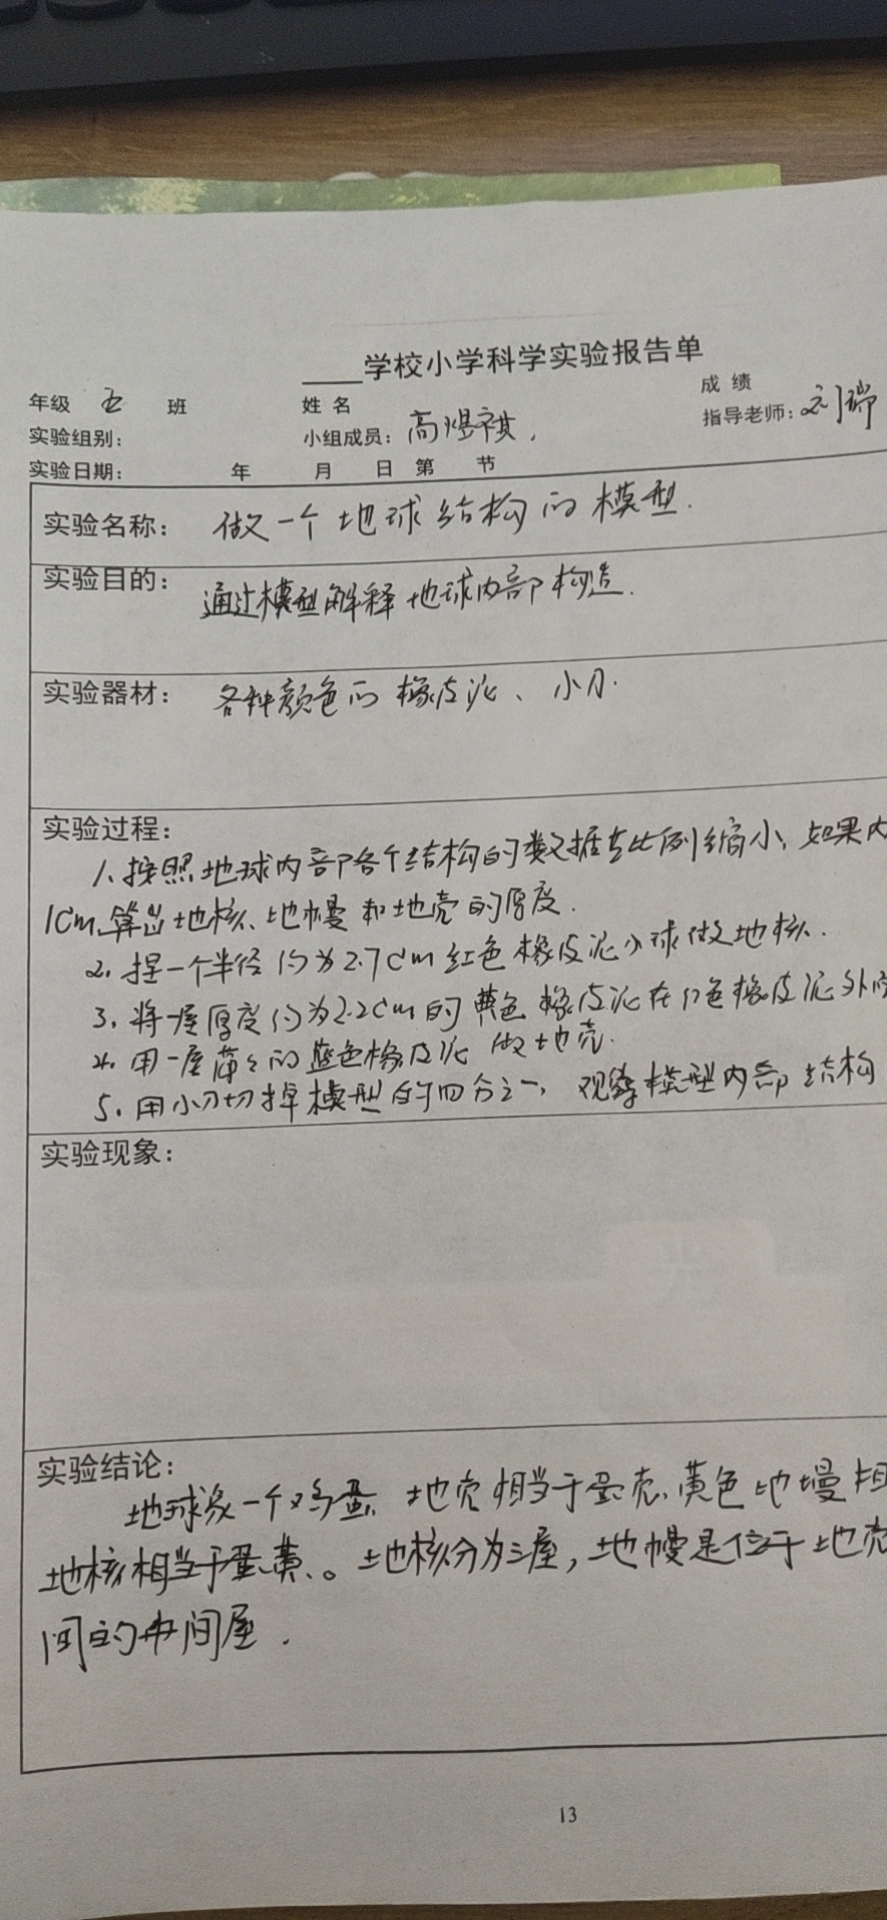 ____学校小学科学实验报告单
年级 五 班 姓名 成绩
实验组别: 小组成员: 高煜祺, 指导老师: 刘瑞
实验日期: 年 月 日 第 节
实验名称: 做一个地球结构的模型.
实验目的: 通过模型解释地球内部构造.
实验器材: 各种颜色的橡皮泥、小刀.
实验过程:
1、按照地球内部各个结构的数据去比例缩小,如果内
1Cm,算出地核、地幔和地壳的厚度.
2. 捏一个半径约为2.7Cm红色橡皮泥小球做地核.
3. 将一层厚度约为2.2Cm的黄色橡皮泥在红色橡皮泥外
4. 用一层薄々的蓝色橡皮泥做地壳.
5. 用小刀切掉模型的四分之一,观察模型内部结构
实验现象:
实验结论:
地球象一个鸡蛋,地壳相当于蛋壳,黄色地墁相
地核相当于蛋黄、。地核分为三层,地幔是位于地壳
间的中间层.
13